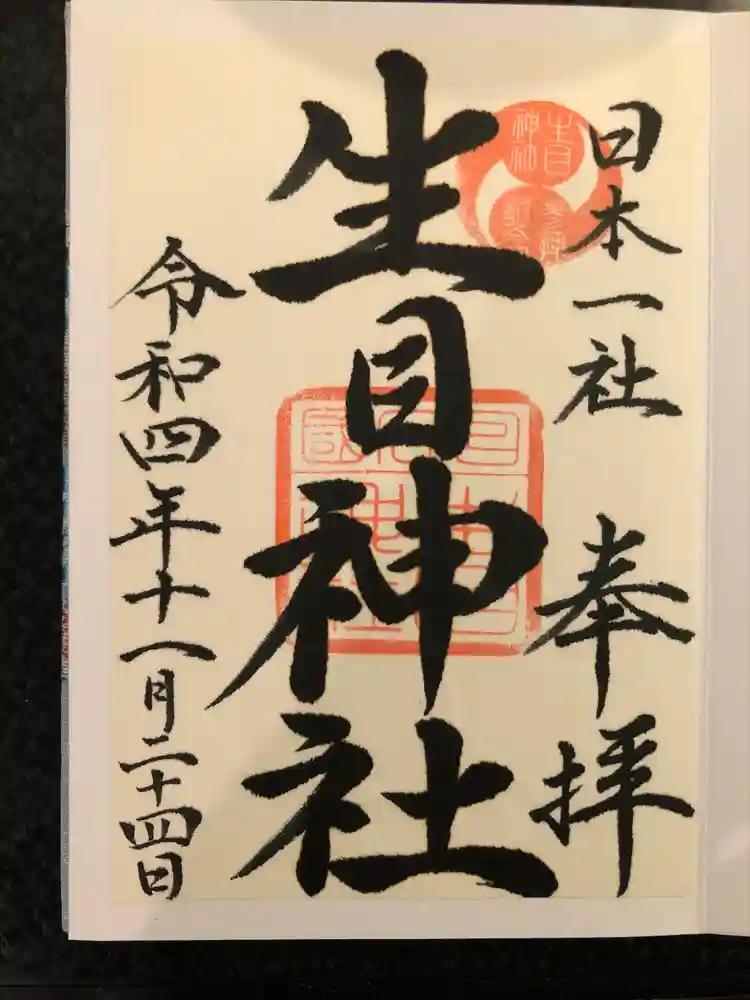 日本一社 奉拝
生目神社
令和四年十一月二十四日
生目
神社